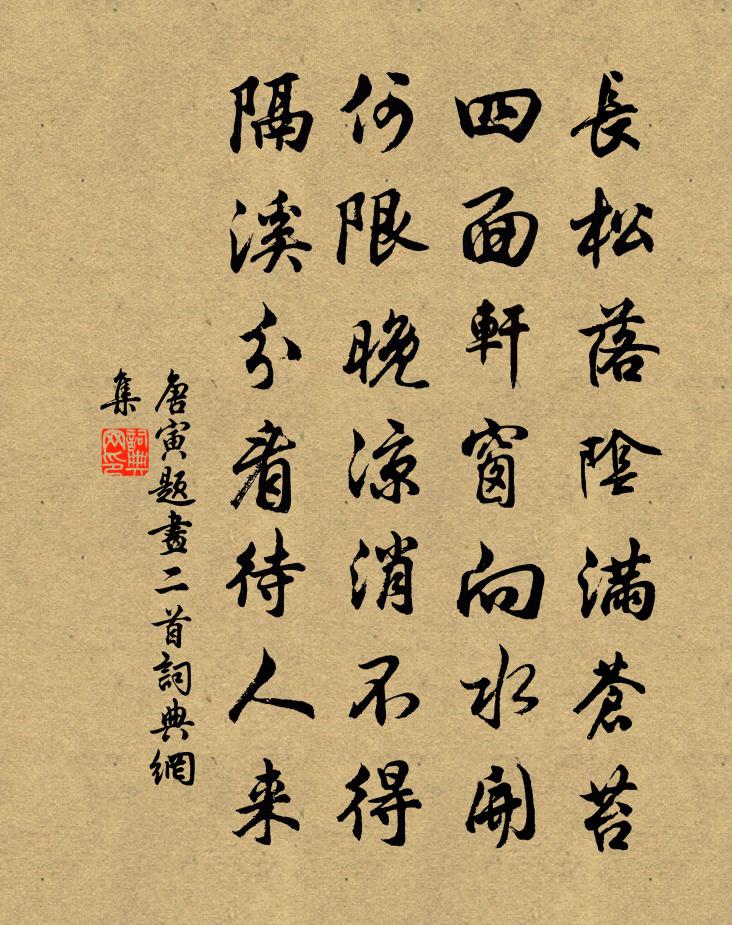 長松落陰滿蒼苔
四面軒窗向水開
何限晚涼消不得
隔溪分着待人来
唐寅題畫二首詞典網
集
詞典
网印